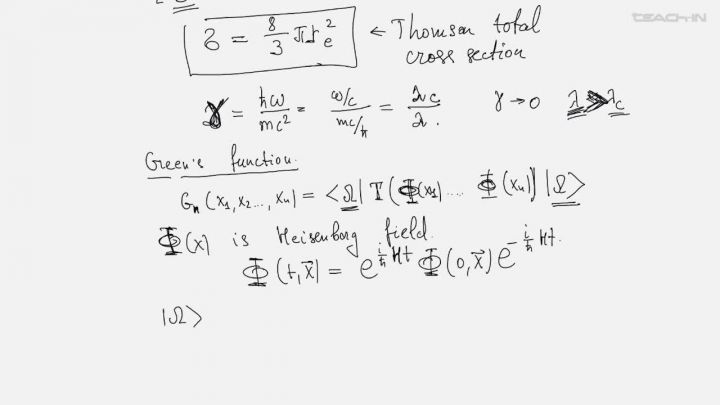 TEACH-IN
б = 8/3 πr_e^2 ← Thomson total cross section
γ = ħω/mc^2 = (ω/c)/(mc/ħ) = λc/λ. γ → 0 λ ≫ λ_c
Green's function.
G_n (x_1, x_2 ..., x_n) = <Ω| T(Φ(x_1) .... Φ(x_n)) |Ω>
Φ(x) is Heisenberg field.
Φ(t, x⃗) = e^{i/ħ Ht} Φ(0, x⃗) e^{-i/ħ Ht}.
|Ω>